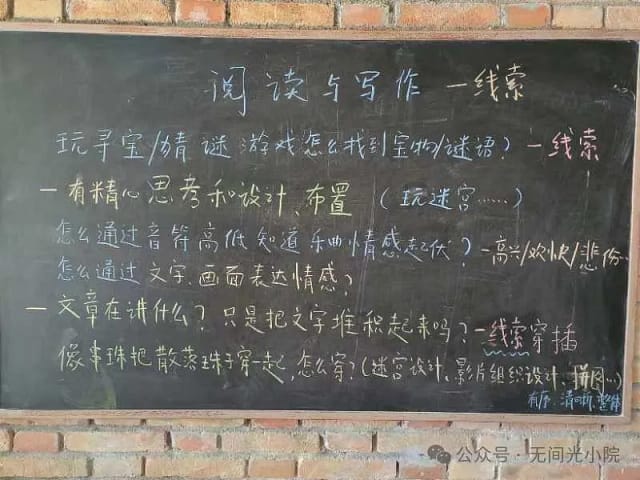 阅读与写作 — 线索
玩寻宝/猜谜游戏怎么找到宝物/谜语？ — 线索
— 有精心思考和设计、布置 （玩迷宫……）
怎么通过音符高低知道乐曲情感起伏？ — 高兴/欢快/悲伤…
怎么通过文字、画面表达情感？
— 文章在讲什么？只是把文字堆积起来吗？ — 线索穿插
像串珠把散落珠子穿一起，怎么穿？（迷宫设计、影片组织设计、拼图…）
有序、清晰、整体
公众号·无间光小院